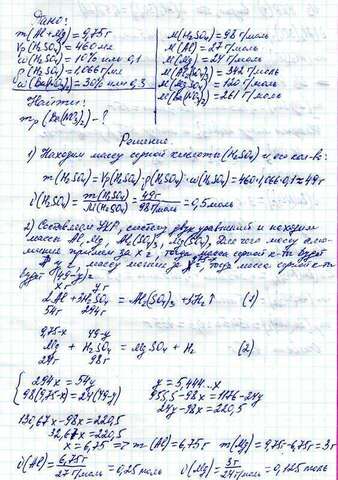 Дано:
m(Al+Mg) = 9,75г
Vр(H₂SO₄) = 460мл
ω(H₂SO₄) = 10% или 0,1
ρ(H₂SO₄) = 1,066г/мл
ω(Ba(NO₃)₂) = 30% или 0,3
M(H₂SO₄) = 98 г/моль
M(Al) = 27 г/моль
M(Mg) = 24 г/моль
M(Al₂(SO₄)₃) = 342 г/моль
M(MgSO₄) = 120 г/моль
M(Ba(NO₃)₂) = 261 г/моль
Найти:
mр(Ba(NO₃)₂) - ?
Решение
1) Находим массу серной кислоты (H₂SO₄) и его кол-во:
m(H₂SO₄) = Vр(H₂SO₄)·ρ(H₂SO₄)·ω(H₂SO₄) = 460·1,066·0,1 = 49г
ν(H₂SO₄) = m(H₂SO₄)/M(H₂SO₄) = 49г/98г/моль = 0,5моль
2) Составляем УХР, систему двух уравнений и находим
массы Al, Mg, Al₂(SO₄)₃, MgSO₄. Для чего массу алю-
миния примем за x г, тогда масса серной к-ты будет
y г, массу магния тогда масса серной к-ты
будет (49-y)г
xг yг
2Al + 3H₂SO₄ = Al₂(SO₄)₃ + 3H₂↑ (1)
54г 294г
9,75-x 49-y
Mg + H₂SO₄ = MgSO₄ + H₂ (2)
24г 98г
{ 294x = 54y y = 5,444...x
98(9,75-x) = 24(49-y) 955,5-98x = 1176-24y
24y-98x = 220,5
130,67x-98x = 220,5
32,67x = 220,5
x = 6,75 => m(Al) = 6,75г m(Mg) = 9,75г-6,75г = 3г
ν(Al) = 6,75г/27г/моль = 0,25 моль ν(Mg) = 3г/24г/моль = 0,125моль